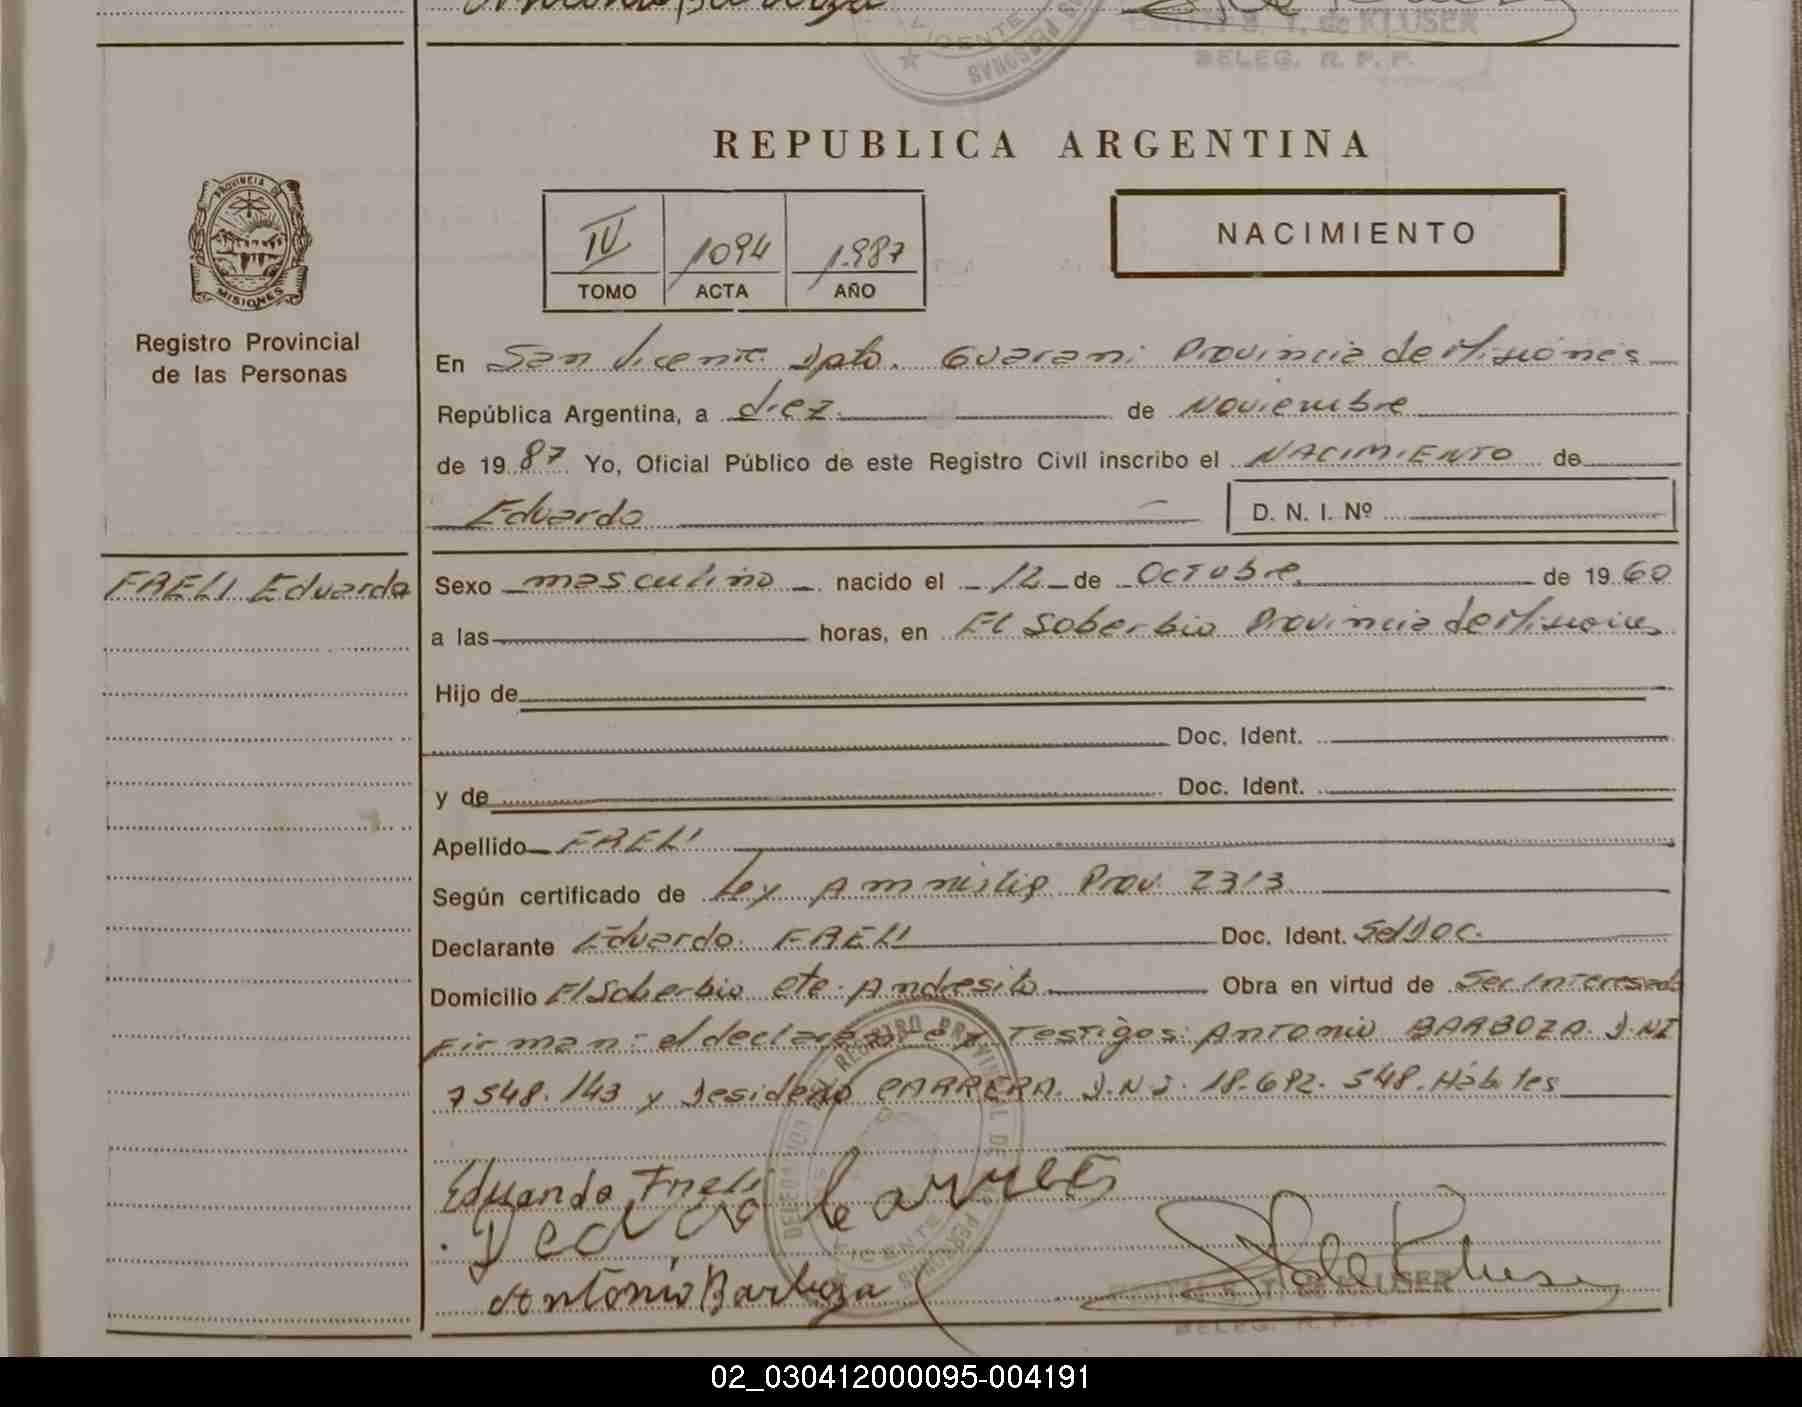 Antonio Barboza
de KLUSER
VICENTE
PERSONAS
DELEG. R. P. P.
REPUBLICA ARGENTINA
PROVINCIA DE
MISIONES
Registro Provincial
de las Personas
IV 1094 1.987
TOMO ACTA AÑO
NACIMIENTO
En San Vicente Dpto. Guarani Provincia de Misiones
República Argentina, a diez de Noviembre
de 19 87 Yo, Oficial Público de este Registro Civil inscribo el NACIMIENTO de
Eduardo
D. N. I. Nº
FAELI Eduardo
Sexo masculino nacido el 12 de Octubre de 19 60
a las horas, en El Soberbio Provincia de Misiones
Hijo de
Doc. Ident.
y de Doc. Ident.
Apellido FAELI
Según certificado de Ley Amnistia Prov. 2313
Declarante Eduardo FAELI Doc. Ident. Se/Doc.
Domicilio El Soberbio Cte. Andresito Obra en virtud de Ser Interesado
Firman: el declarante y Testigos: Antonio BARBOZA. D.NI
7548.143 y Desiderio CARRERA. D.N.I. 18.692.548. Hábiles
Eduardo Faeli
Antonio Barboza
de KLUSER
DELEG. R. P. P.
DELEGACION DEL REGISTRO PROVINCIAL DE LAS PERSONAS
VICENTE
02_030412000095-004191